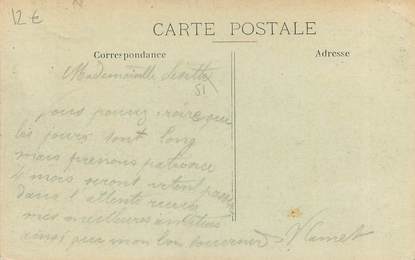 12 €
CARTE POSTALE
Correspondance
Adresse
Mademoiselle
51
vous pouvez croire que
les jours sont long
mais prenons patience
4 mois seront vitent passé
dans l'attente recevez
mes meilleures amitiées
ainsi que mon bon souvenir